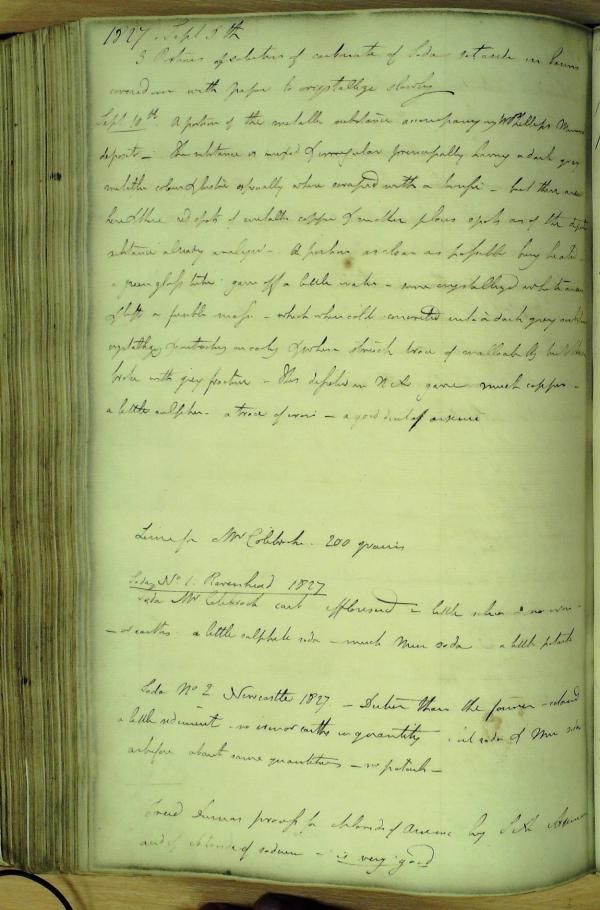 1827. Sept 5th
3 Potions of solution of carbonate of Soda set aside in basins
covered in with paper to crystallize slowly
Sept 10th. A portion of the metallic substance accompanying Mr Phillips
deposits - The substance is mixed & irregular principally having a dark grey
metallic colour & lustre especially where scraped with a knife - but there are
here & there red spots of metallic copper & in other places spots as of the
substance already analyzed - A portion as clean as possible being heated in
a green glass tube gave off a little water - some crystallized white
& left a fusible mass - which when cold concreted into a dark grey
crystallizes & contracting in cooling & when struck trace of malleability but
broke with grey fracture - This dissolved in N A gave much copper -
a little sulphur - a trace of iron - a good deal of arsenic
Lime for Mr Colebrook. 200 grains
Soda, No 1. Ravenhead 1827
Soda Mr Colebrook cart effloresced - little silica - no iron
- or earths a little sulphate soda - much Mur soda a little potash
Soda No 2. Newcastle 1827 - Dirtier than the former - coloured
a little sediment - no iron or earths in quantity sul soda & Mur soda
as before about same quantities - no potash -
Tried Dumas process for chloride of Arsenic by S A
and of chloride of sodium - is very good